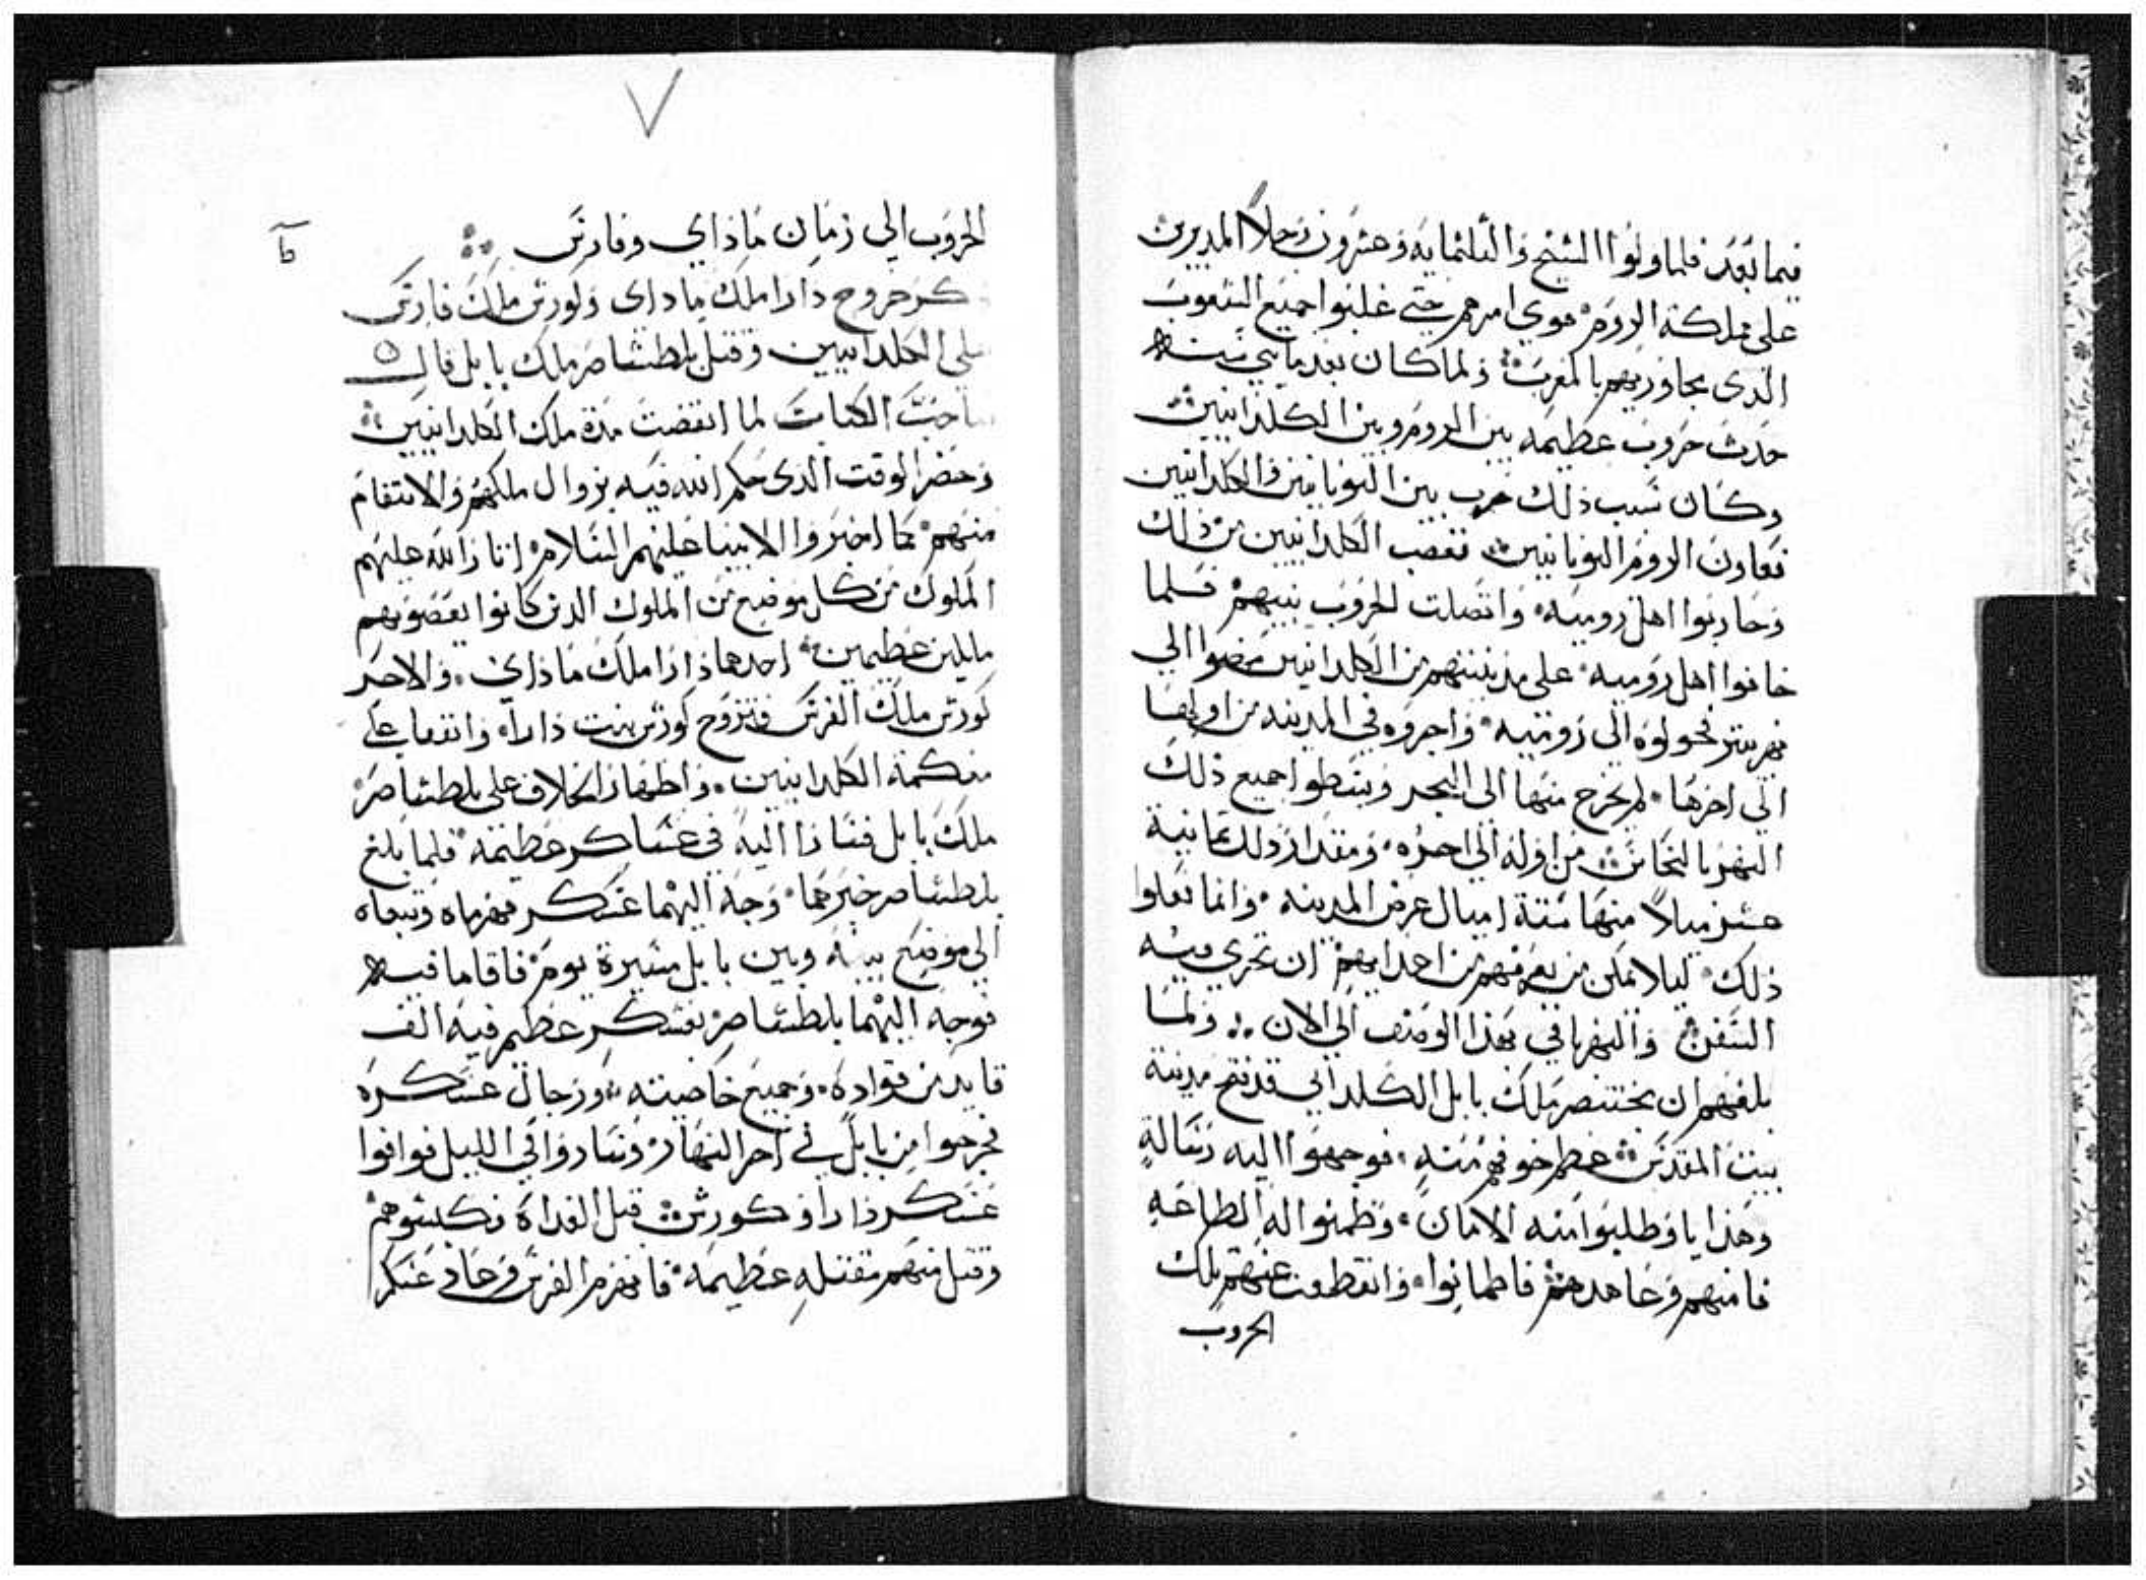 فيما بعد فلما ولوا الشيخ والثلثمايه وعشرون رجلاً المدبرين
على مملكة الروم قوي امرهم حتى غلبوا جميع الشعوب
الذى يجاوريهم بالمغرب ولما كان بعد مايتي سنه
حدث حروب عظيمه بين الروم وبين الكلدانيين
وكان سبب ذلك حرب بين اليونانيين والكلدانيين
فعاون الروم اليونانيين فغضب الكلدانيين من ذلك
وحاربوا اهل روميه واتصلت الحروب بينهم فلما
خافوا اهل روميه على مدينتهم من الكلدانيين مضوا الي
نهر فحولوه الى روميه واجروه في المدينه من اولها
الى اخرها ثم يخرج منها الى البحر وبسطوا جميع ذلك
النهر بالنحاس من اوله الى اخره ومقدار ذلك ثمانية
عشر ميلاً منها ستة اميال عرض المدينه وانما فعلوا
ذلك ليلا يمكن من يعرفهم من اعدايهم ان تجري فيه
السفن والنهر باقي بهذا الوصف الي الان ولما
بلغهم ان بختنصر ملك بابل الكلداني قد فتح مدينة
بيت المقدس عظم خوفهم منه فوجهوا اليه رسالة
وهدايا وطلبوا منه الامان وضمنوا له الطاعه
فامنهم وعاهدهم فاطمانوا وانقطعت عنهم تلك
الحروب
الحروب الي زمان ماداي وفارس
كر خروج دارا ملك ماداى وكورش ملك فارس
على الكلدانيين وقتل بلطشاصر ملك بابل قال
صاحب الكتاب لما انقضت مدة ملك الكلدانيين
وحضر الوقت الدى حكم الله فيه بزوال ملكهم والانتقام
منهم كما اخبروا الانبيا عليهم السلام اثار الله عليهم
الملوك من كل موضع من الملوك الدين كانوا يعصونهم
مالكين عظيمين احدهما دارا ملك ماداي والاخر
كورش ملك الفرس فتزوج كورش بنت دارا واتفقا على
الكلدانيين واظهارا الخلاف على بلطشاصر
ملك بابل فسارا اليه في عساكر عظيمه فلما بلغ
بلطشاصر خبرهما وجه اليهما عسكر فهزماه وتبعاه
الي موضع بينه وبين بابل مسيرة يوم فاقاما فيه
فوجه اليهما بلطشاصر بعسكر عظيم فيه الف
قايد من قواده وجميع خاصيته ورجال عسكره
فخرجوا من بابل في اخر النهار وساروا في الليل فوافوا
عسكر دارا وكورش قبل الغداة فكبسوهم
وقتل منهم مقتله عظيمه فانهزم الفرس وعاد عسكر